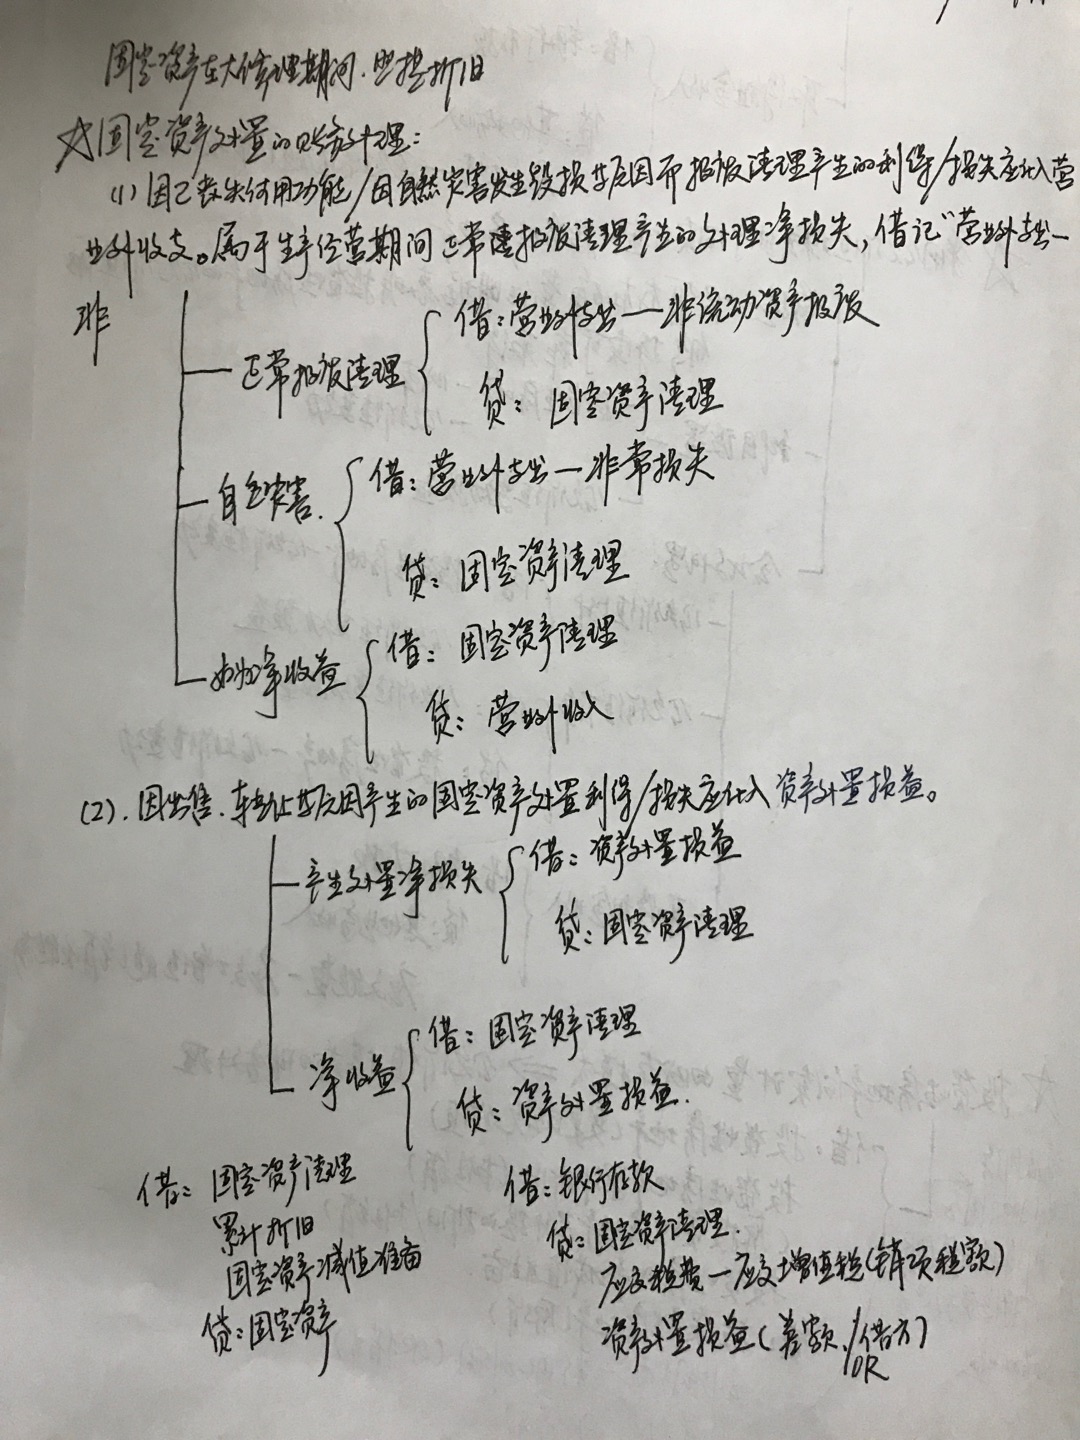 固定资产在大修理期间.照提折旧
☆固定资产处置的账务处理:
(1)因已丧失使用功能/因自然灾害发生毁损等原因而报废清理产生的利得/损失应计入营
业外收支。属于生产经营期间正常报废清理产生的处理净损失,借记“营业外支出—
非
正常报废清理
借:营业外支出—非流动资产报废
贷:固定资产清理
自然灾害.
借:营业外支出—非常损失
贷:固定资产清理
净收益
借:固定资产清理
贷:营业外收入
(2).因出售.转让等原因产生的固定资产处置利得/损失应计入资产处置损益。
产生处置净损失
借:资产处置损益
贷:固定资产清理
净收益
借:固定资产清理
贷:资产处置损益.
借:固定资产清理
累计折旧
固定资产减值准备
贷:固定资产
借:银行存款
贷:固定资产清理.
应交税费—应交增值税(销项税额)
资产处置损益(差额,/借方)
OR